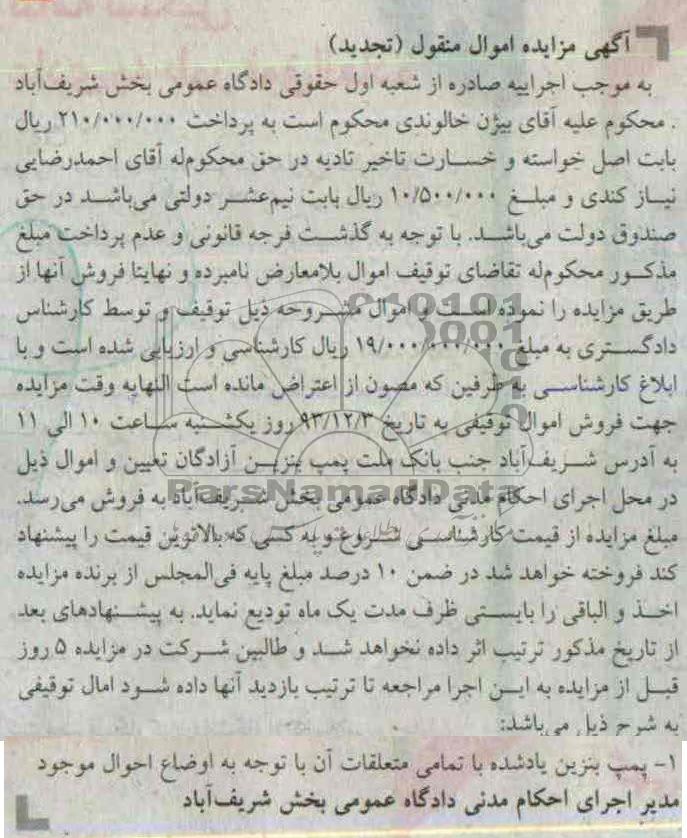 آگهی مزایده اموال منقول (تجدید)
به موجب اجراییه صادره از شعبه اول حقوقی دادگاه عمومی بخش شریف‌آباد
. محکوم علیه آقای بیژن خالوندی محکوم است به پرداخت ۲۱۰/۰۰۰/۰۰۰ ریال
بابت اصل خواسته و خسارت تاخیر تادیه در حق محکوم‌له آقای احمدرضایی
نیاز کندی و مبلغ ۱۰/۵۰۰/۰۰۰ ریال بابت نیم‌عشر دولتی می‌باشد در حق
صندوق دولت می‌باشد. با توجه به گذشت فرجه قانونی و عدم پرداخت مبلغ
مذکور محکوم‌له تقاضای توقیف اموال بلامعارض نامبرده و نهایتا فروش آنها از
طریق مزایده را نموده است و اموال مشروحه ذیل توقیف و توسط کارشناس
دادگستری به مبلغ ۱۹/۰۰۰/۰۰۰/۰۰۰ ریال کارشناسی و ارزیابی شده است و با
ابلاغ کارشناسی به طرفین که مصون از اعتراض مانده است النهایه وقت مزایده
جهت فروش اموال توقیفی به تاریخ ۹۳/۱۲/۳ روز یکشنبه ساعت ۱۰ الی ۱۱
به آدرس شریف‌آباد جنب بانک ملت پمپ بنزین آزادگان تعیین و اموال ذیل
در محل اجرای احکام مدنی دادگاه عمومی بخش شریف‌آباد به فروش می‌رسد.
ParsNamadData
مبلغ مزایده از قیمت کارشناسی شروع و به کسی که بالاترین قیمت را پیشنهاد
کند فروخته خواهد شد در ضمن ۱۰ درصد مبلغ پایه فی‌المجلس از برنده مزایده
اخذ و الباقی را بایستی ظرف مدت یک ماه تودیع نماید. به پیشنهادهای بعد
از تاریخ مذکور ترتیب اثر داده نخواهد شد و طالبین شرکت در مزایده ۵ روز
قبل از مزایده به این اجرا مراجعه تا ترتیب بازدید آنها داده شود امال توقیفی
به شرح ذیل می‌باشد:
۱- پمپ بنزین یادشده با تمامی متعلقات آن با توجه به اوضاع احوال موجود
مدیر اجرای احکام مدنی دادگاه عمومی بخش شریف‌آباد